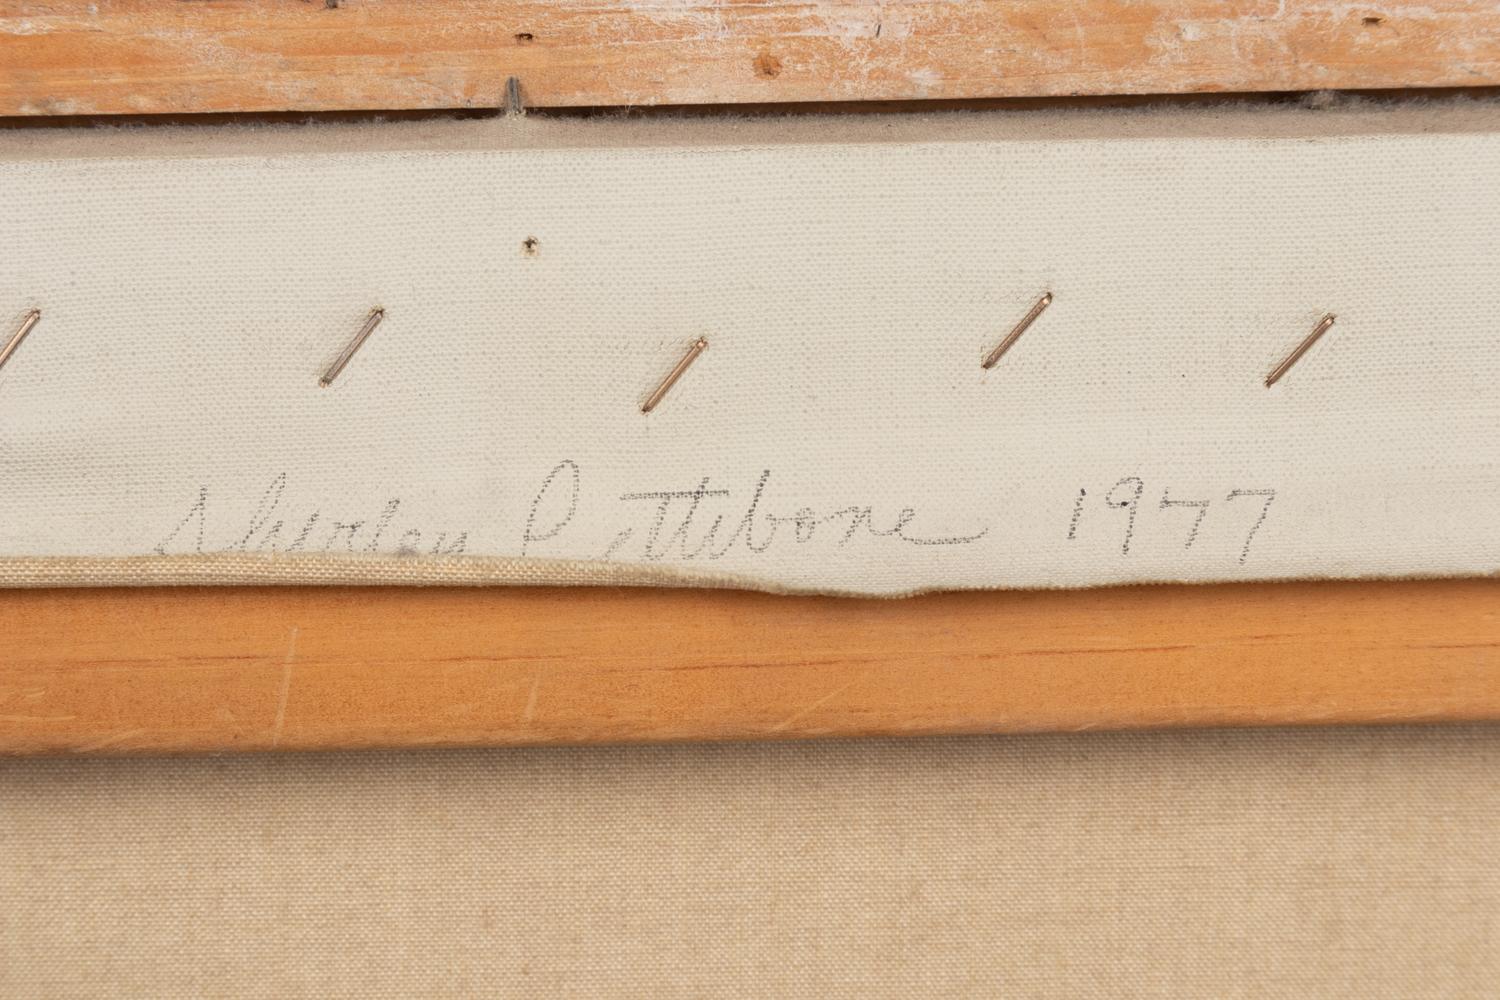 Shirley Pettibone 1977